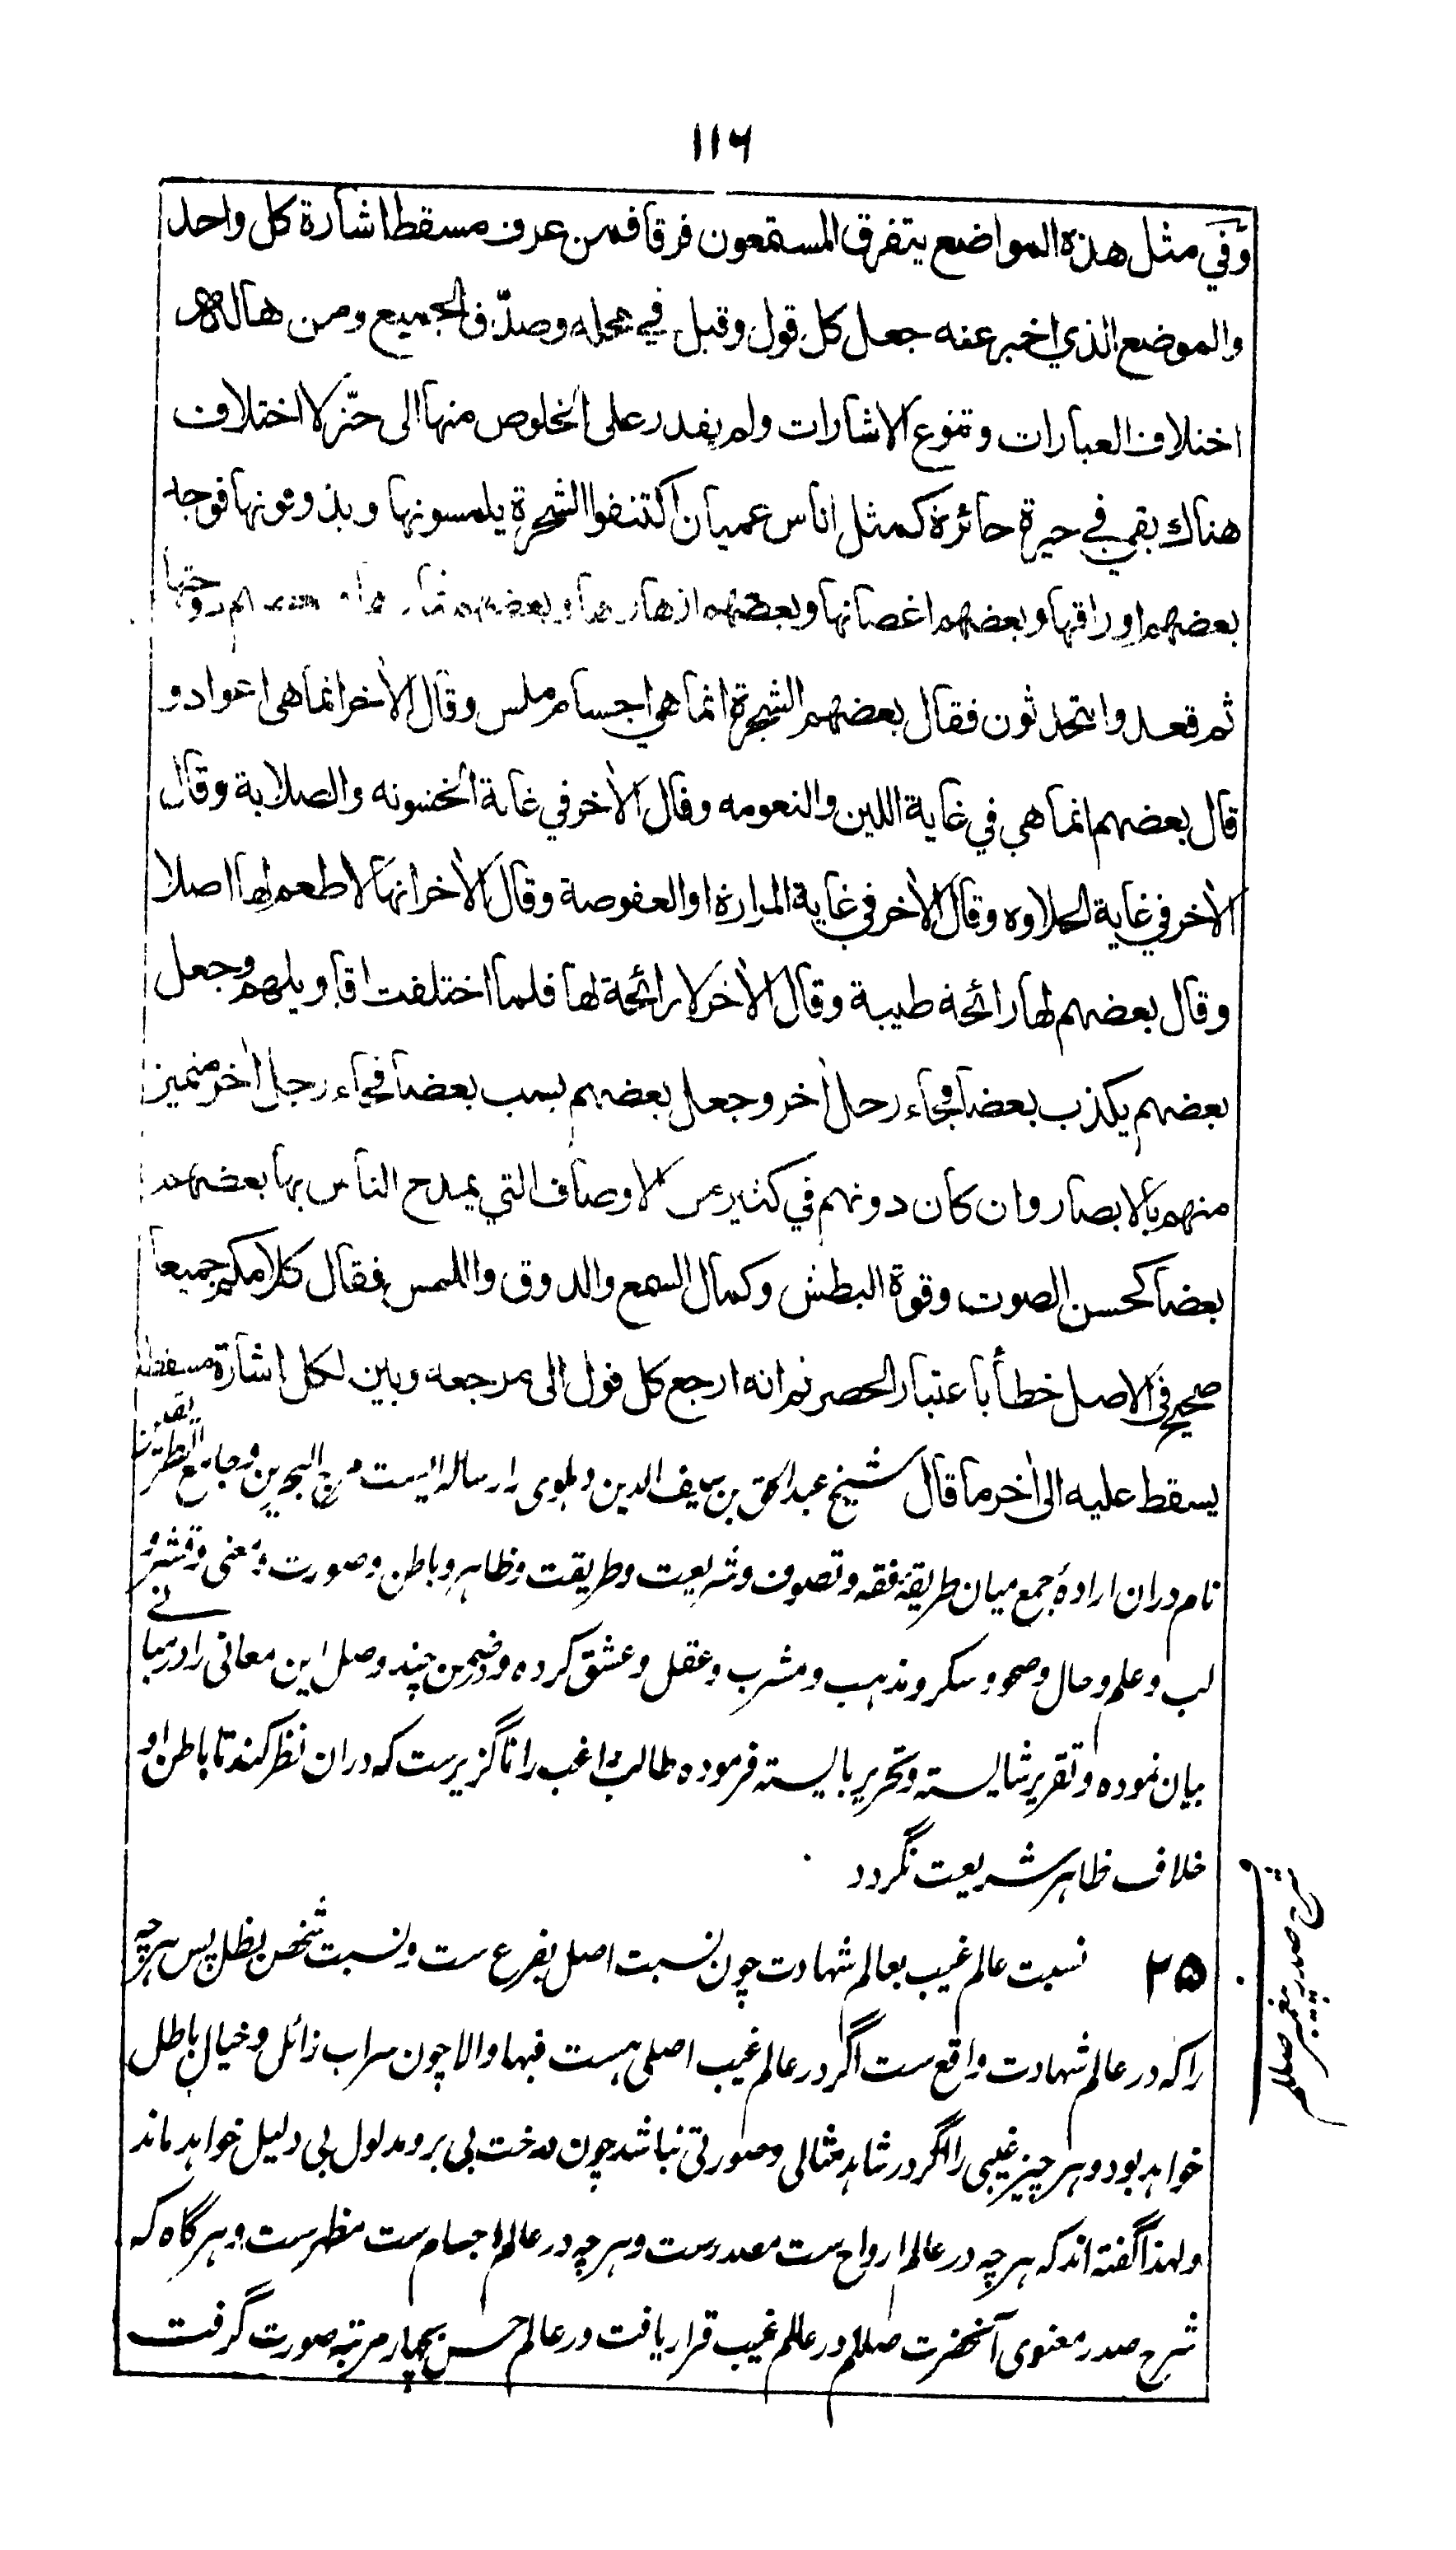 ۱۱۶
وَفي مثل هذه المواضع يتفرق المستمعون فرقا فمن عرف مسقط اشارة كل واحد
والموضع الذي اخبر عنه جعل كل قول وقبل في محله وصدّق الجميع ومن هاله
اختلاف العبارات وتنوع الاشارات ولم يقدر على الخلوص منها الى حيّز لا اختلاف
هناك بقي في حيرة حائرة كمثل اناس عميان اكتنفوا الشجرة يلمسونها ويذوقونها فوجد
بعضهم اوراقها وبعضهم اغصانها وبعضهم ازهارها وبعضهم
ثم قعدوا يتحدثون فقال بعضهم الشجرة انما هي اجسام ملس وقال الاٰخر انما هى اعواد و
قال بعضهم انما هي في غاية اللين والنعومه وقال الاٰخر في غاية الخشونه والصلابة وقال
الاٰخر في غاية الحلاوه وقال الاٰخر في غاية المرارة او العفوصة وقال الاٰخر انها لا طعم لها اصلا
وقال بعضهم لها رائحة طيبة وقال الاٰخر لا رائحة لها فلما اختلفت اقاويلهم وجعل
بعضهم يكذب بعضا فجاء رجل اٰخر وجعل بعضهم يسب بعضا فجاء رجل اٰخر متميز
منهم بالابصار وان كان دونهم في كثير من الاوصاف التي يمدح الناس بها بعضهم
بعضا كحسن الصوت وقوة البطش وكمال السمع والذوق واللمس فقال كلامكم جميعا
صحيح في الاصل خطأ باعتبار الحصر ثم انه ارجع كل قول الى مرجعه وبين لكل اشارة مسقطا
يسقط عليه الى اٰخر ما قال شیخ عبدالحق بن سیف الدین دہلوی را رساله ایست مرج البحرین و جامع الطریقین
نام دران ارادۂ جمع میان طریقۂ فقہ و تصوف و شریعت و طریقت و ظاہر و باطن و صورت و معنی و قشر و
لب و علم و حال و صحو و سکر و مذہب و مشرب و عقل و عشق کرده و در ضمن چند وصل این معانی را در مبانے
بیان نموده و تقریر شایسته و تحریر بایسته فرموده طالب راغب را ناگزیرست که دران نظر کند تا باطن او
خلاف ظاہر شریعت نگردد
۲۵ نسبت عالم غیب بعالم شهادت چون نسبت اصل بفرع ست و نسبت شخص بظل پس هرچه
را که در عالم شهادت واقع ست اگر در عالم غیب اصلی هست فبها والا چون سراب زائل و خیال باطل
خواهد بود و هر چیز غیبی را اگر در شاہد مثالی و صورتی نباشد چون درخت بی بر و مدلول بی دلیل خواهد ماند
ولهذا گفته اند که هرچه در عالم ارواح ست مصدرست و هرچه در عالم اجسام ست مظہرست و هرگاه که
شرح صدر معنوی آنحضرت صلعلم در عالم غیب قرار یافت در عالم حس بچهار مرتبه صورت گرفت
شرح صدر پیغمبر صللم